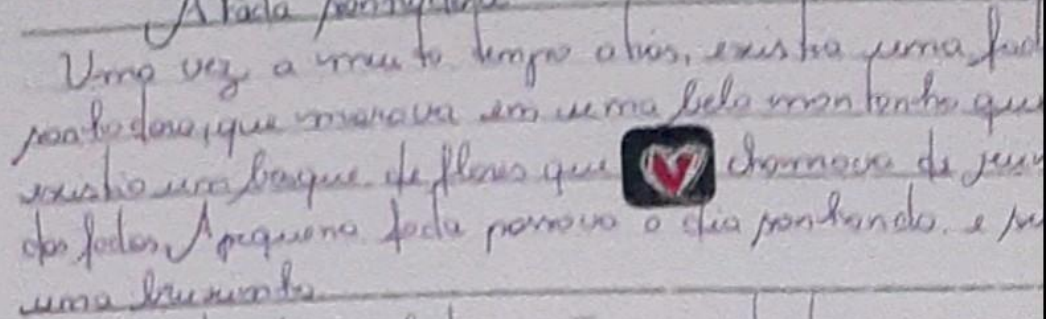 A fada
Uma vez a muito tempo atrás, existia uma fad
sonhadora, que morava em uma bela montanha que
existia um bosque de flores que chamava de
das fadas, A pequena fada passava o dia sonhando. e
uma